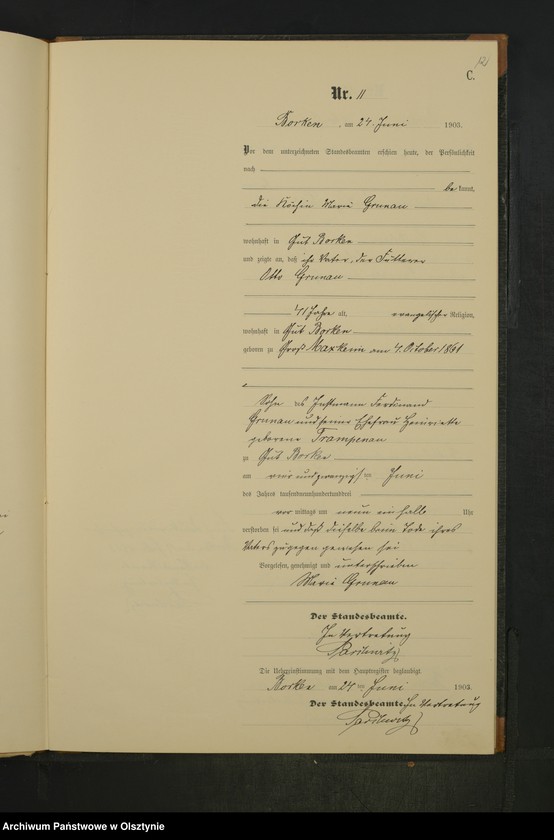 C.
Nr. 11
Borken, am 24. Juni 1903.
Vor dem unterzeichneten Standesbeamten erschien heute, der Persönlichkeit
nach
bekannt,
die Köchin Marie Grunau
wohnhaft in Gut Borken
und zeigte an, daß ihr Vater, der Fütterer
Otto Grunau
41 Jahre alt, evangelischer Religion,
wohnhaft in Gut Borken
geboren zu Groß Maxkeim am 4. October 1861
Sohn des Instmann Ferdinand
Grunau und seiner Ehefrau Henriette
geborene Trampenau
zu Gut Borken
am und zwanzigsten Juni
des Jahres tausendneunhundertunddrei
vormittags um neun ein halb Uhr
verstorben sei und daß dieselbe beim Tode ihres
Vaters zugegen gewesen sei
Vorgelesen, genehmigt und unterschrieben
Marie Grunau
Der Standesbeamte.
In Vertretung
Die Uebereinstimmung mit dem Hauptregister beglaubigt
Borken am 24ten Juni 1903.
Der Standesbeamte. In Vertretung
Archiwum Państwowe w Olsztynie